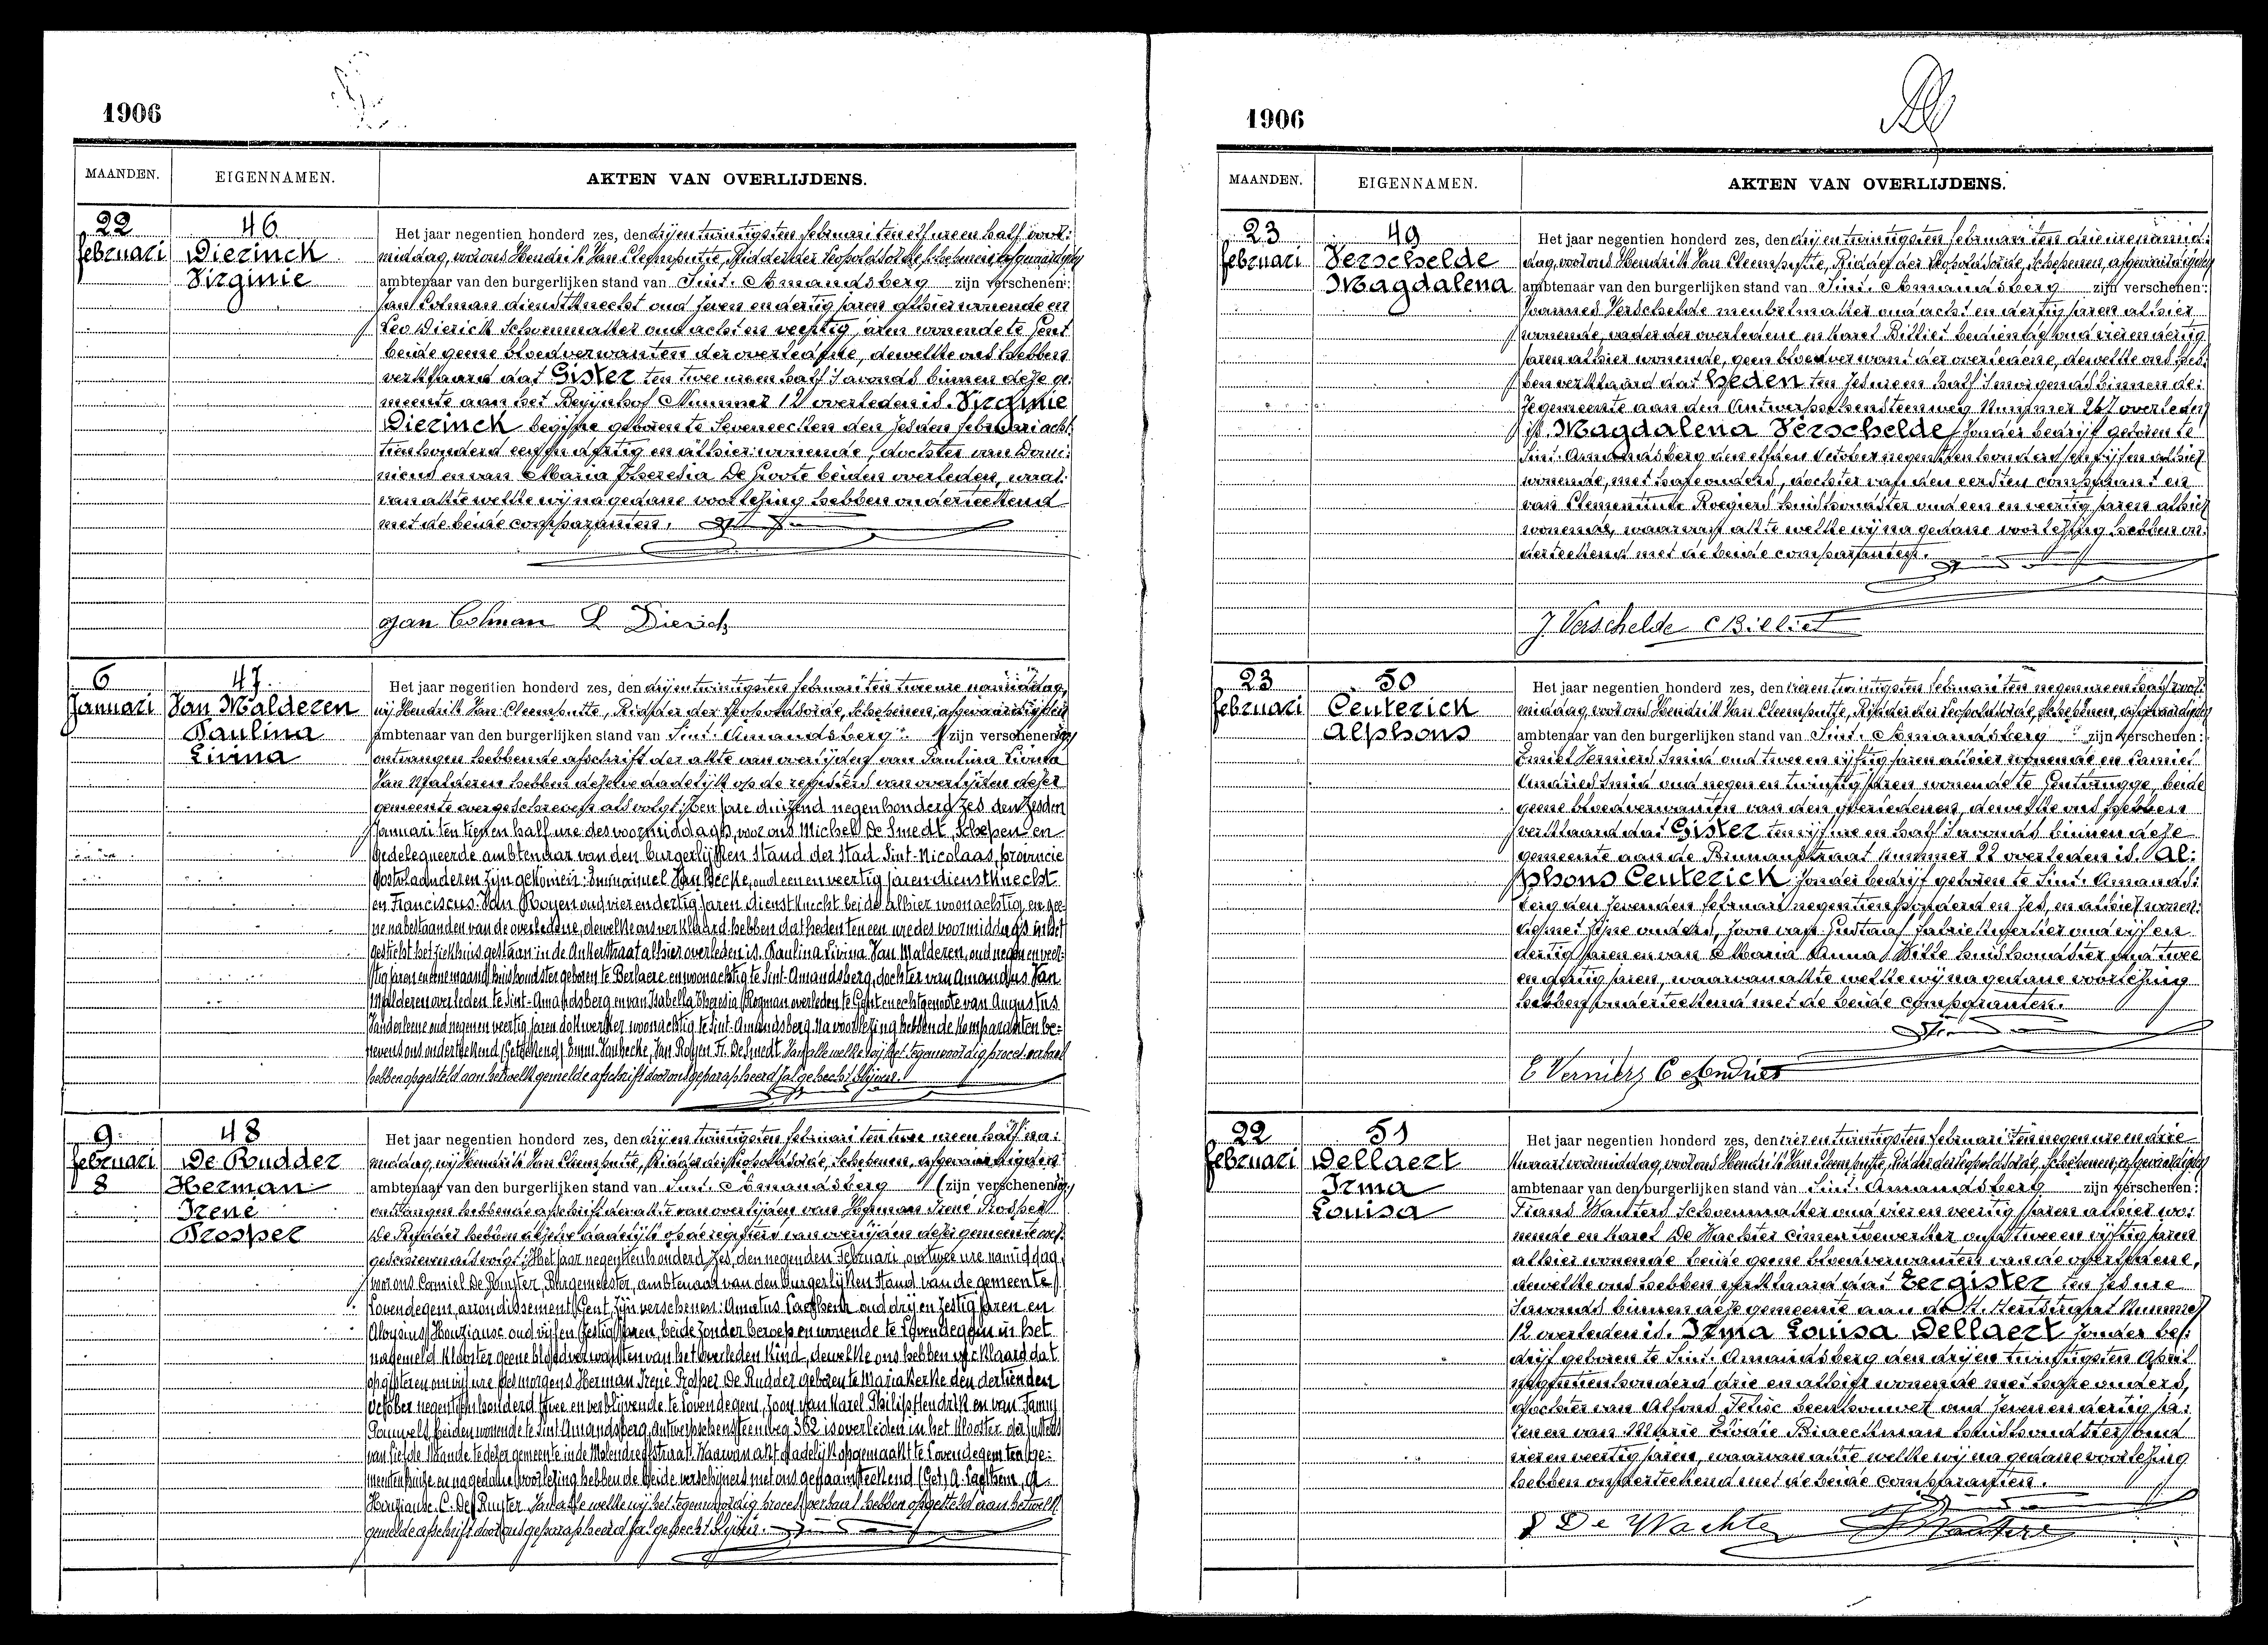 1906
MAANDEN. EIGENNAMEN. AKTEN VAN OVERLIJDENS.
22 46
februari Dierinck
Virginie
Het jaar negentien honderd zes, den drijentwintigsten februari ten elf ure en half voor-
middag, voor ons Hendrik Van Cleemputte, Ridder der Leopoldsorde, schepenen, afgevaardigden
ambtenaar van den burgerlijken stand van Sint. Amandsberg zijn verschenen:
Jan Colman dienstknecht oud zeven en dertig jaren alhier wonende en
Leo Dierick schoenmaker oud acht en veertig jaren wonende te Gent
beide geene bloedverwanten der overledene, dewelke ons hebben
verklaard dat Gister ten twee ure en half 's avonds binnen deze ge-
meente aan het Begijnhof Nummer 12 overleden is. Virginie
Dierinck begijne geboren te Seveneecken den zesden februari acht-
tien honderd een en dertig en alhier wonende, dochter van Domi-
nicus en van Maria Theresia De Groote beiden overleden, waar-
van akte welke wij na gedane voorlezing hebben onderteekend
met de beide comparanten.
Jan Colman L Dierick
6 47
Januari Van Malderen
Paulina
Livina
Het jaar negentien honderd zes, den drijentwintigsten februari ten twee ure namiddag,
wij Hendrik Van Cleemputte, Ridder der Leopoldsorde, schepenen, afgevaardigden
ambtenaar van den burgerlijken stand van Sint. Amandsberg zijn verschenen
ontvangen hebbende afschrift der akte van overlijden van Paulina Livina
Van Malderen hebben dezelve dadelijk op de registers van overlijden dezer
gemeente overgeschreven als volgt: Ten jare duizend negenhonderd zes den zesden
Januari ten tien en half ure des voormiddags, voor ons Michel De Smedt, Schepen en
Gedelegueerde ambtenaar van den burgerlijken stand der stad Sint-Nicolaas, provincie
Oostvlaanderen zijn gekomen: Emmanuel Van Becke, oud een en veertig jaren dienstknecht
en Franciscus Van Royen oud vier en dertig jaren dienstknecht beide alhier woonachtig, en gee-
ne nabestaanden van de overledene, dewelke ons verklaard hebben dat heden ten een ure des voormiddags in het
gesticht het ziekhuis gestaan in de Ankerstraat alhier overleden is. Paulina Livina Van Malderen, oud negen en veer-
tig jaren en eene maand huishoudster geboren te Berlaere en woonachtig te Sint-Amandsberg, dochter van Amandus Van
Malderen overleden te Sint-Amandsberg en van Isabella Theresia Rogman overleden te Gent en echtgenoote van Augustus
Vanderleene oud negen en veertig jaren dokwerker woonachtig te Sint-Amandsberg. Na voorlezing hebben de komparanten be-
nevens ons onderteekend (Geteekend) Emm. Vanbecke, Van Royen Fr. De Smedt. Van alle welke wij het tegenwoordig proces-verbaal
hebben opgesteld aan hetwelk gemelde afschrift door ons geparapheerd zal gehecht blijven.
9 48
februari De Rudder
8 Herman
Irené
Prosper
Het jaar negentien honderd zes, den drijentwintigsten februari ten twee ure en half na-
middag, wij Hendrik Van Cleemputte, Ridder der Leopoldsorde, schepenen, afgevaardigden
ambtenaar van den burgerlijken stand van Sint. Amandsberg zijn verschenen
ontvangen hebbende afschrift der akte van overlijden van Herman Irené Prosper
De Rudder hebben dezelve dadelijk op de registers van overlijden dezer gemeente over-
geschreven als volgt: Het jaar negentienhonderd zes, den negenden Februari, om twee ure namiddag,
voor ons Camiel De Ruyter, Burgemeester, ambtenaar van den Burgerlijken Stand van de gemeente
Lovendegem, arrondissement Gent, zijn verschenen: Amatus oud drij en zestig jaren en
Aloysius oud vijf en zestig jaren, beide zonder beroep en wonende te Lovendegem in het
nagemeld klooster geene bloedverwanten van het overleden kind, dewelke ons hebben verklaard dat
opgisteren om vijf ure des morgens Herman Irené Prosper De Rudder geboren te Mariakerke den dertienden
October negentienhonderd twee en verblijvende te Lovendegem, zoon van Karel Philip Hendrik en van Fanny
Pauwels, beiden wonende te Sint Amandsberg, Antwerpschensteenweg 362 is overleden in het klooster der Zusters
van Liefde staande te dezer gemeente in de Molendreefstraat. Waarvan akt dadelijk opgemaakt te Lovendegem ten ge-
meentenhuize en na gedane voorlezing hebben de beide verschijners met ons geteekend (Get) A.
C. De Ruyter. Van alle welke wij het tegenwoordig proces verbaal hebben opgesteld aan hetwelk
gemelde afschrift door ons geparapheerd zal gehecht blijven.
1906
MAANDEN. EIGENNAMEN. AKTEN VAN OVERLIJDENS.
23 49
februari Verschelde
Magdalena
Het jaar negentien honderd zes, den drijentwintigsten februari ten drie ure namid-
dag, voor ons Hendrik Van Cleemputte, Ridder der Leopoldsorde, schepenen, afgevaardigden
ambtenaar van den burgerlijken stand van Sint. Amandsberg zijn verschenen:
Joannes Verschelde meubelmaker oud acht en dertig jaren alhier
wonende, vader der overledene en Karel Billiet bediende oud vier en dertig
jaren alhier wonende, geen bloedverwant der overledene, dewelke ons heb-
ben verklaard dat heden ten zes ure en half 's morgends binnen de-
ze gemeente aan den Antwerpschensteenweg Nummer 267 overleden
is. Magdalena Verschelde zonder bedrijf geboren te
Sint. Amandsberg den elfden October negentienhonderd en vijf en alhier
wonende, met hare ouders, dochter van den eersten comparant en
van Clementine Rogiers huishoudster oud een en veertig jaren alhier
wonende, waarvan akte welke wij na gedane voorlezing hebben on-
derteekend met de beide comparanten.
J. Verschelde C Billiet
23 50
februari Ceuterick
Alphons
Het jaar negentien honderd zes, den vierentwintigsten februari ten negen ure en half voor-
middag, voor ons Hendrik Van Cleemputte, Ridder der Leopoldsorde, schepenen, afgevaardigden
ambtenaar van den burgerlijken stand van Sint. Amandsberg zijn verschenen:
Emiel Verniers smid oud twee en vijftig jaren alhier wonende en Camiel
Andries smid oud negen en twintig jaren wonende te Gentbrugge, beide
geene bloedverwanten van den overledenen, dewelke ons hebben
verklaard dat Gister ten vijf ure en half 's avonds binnen deze
gemeente aan de straat Nummer 22 overleden is. Al-
phons Ceuterick zonder bedrijf geboren te Sint. Amands-
berg den zevenden februari negentienhonderd en zes, en alhier wonen-
de met zijne ouders, zoon van Gustaaf fabriekwerker oud vijf en
dertig jaren en van Maria Anna Witte huishoudster oud twee
en dertig jaren, waarvan akte welke wij na gedane voorlezing
hebben onderteekend met de beide comparanten.
E Verniers C Andries
22 51
februari Dellaert
Irma
Louisa
Het jaar negentien honderd zes, den vierentwintigsten februari ten negen ure en drie
kwaart voormiddag, voor ons Hendrik Van Cleemputte, Ridder der Leopoldsorde, schepenen, afgevaardigden
ambtenaar van den burgerlijken stand van Sint. Amandsberg zijn verschenen:
Frans Wauters schoenmaker oud vier en veertig jaren alhier wo-
nende en Karel De Wachter cimentbewerker oud twee en vijftig jaren
alhier wonende beide geene bloedverwanten van de overledene,
dewelke ons hebben verklaard dat Eergister ten zes ure
's avonds binnen deze gemeente aan de Nummer
12 overleden is. Irma Louisa Dellaert zonder be-
drijf geboren te Sint. Amandsberg den drijentwintigsten April
negentienhonderd drie en alhier wonende met hare ouders,
dochter van Alfons beenhouwer oud zeven en dertig ja-
ren en van Marie Braeckman huishoudster oud
vier en veertig jaren, waarvan akte welke wij na gedane voorlezing
hebben onderteekend met de beide comparanten.
De Wachter Wauters